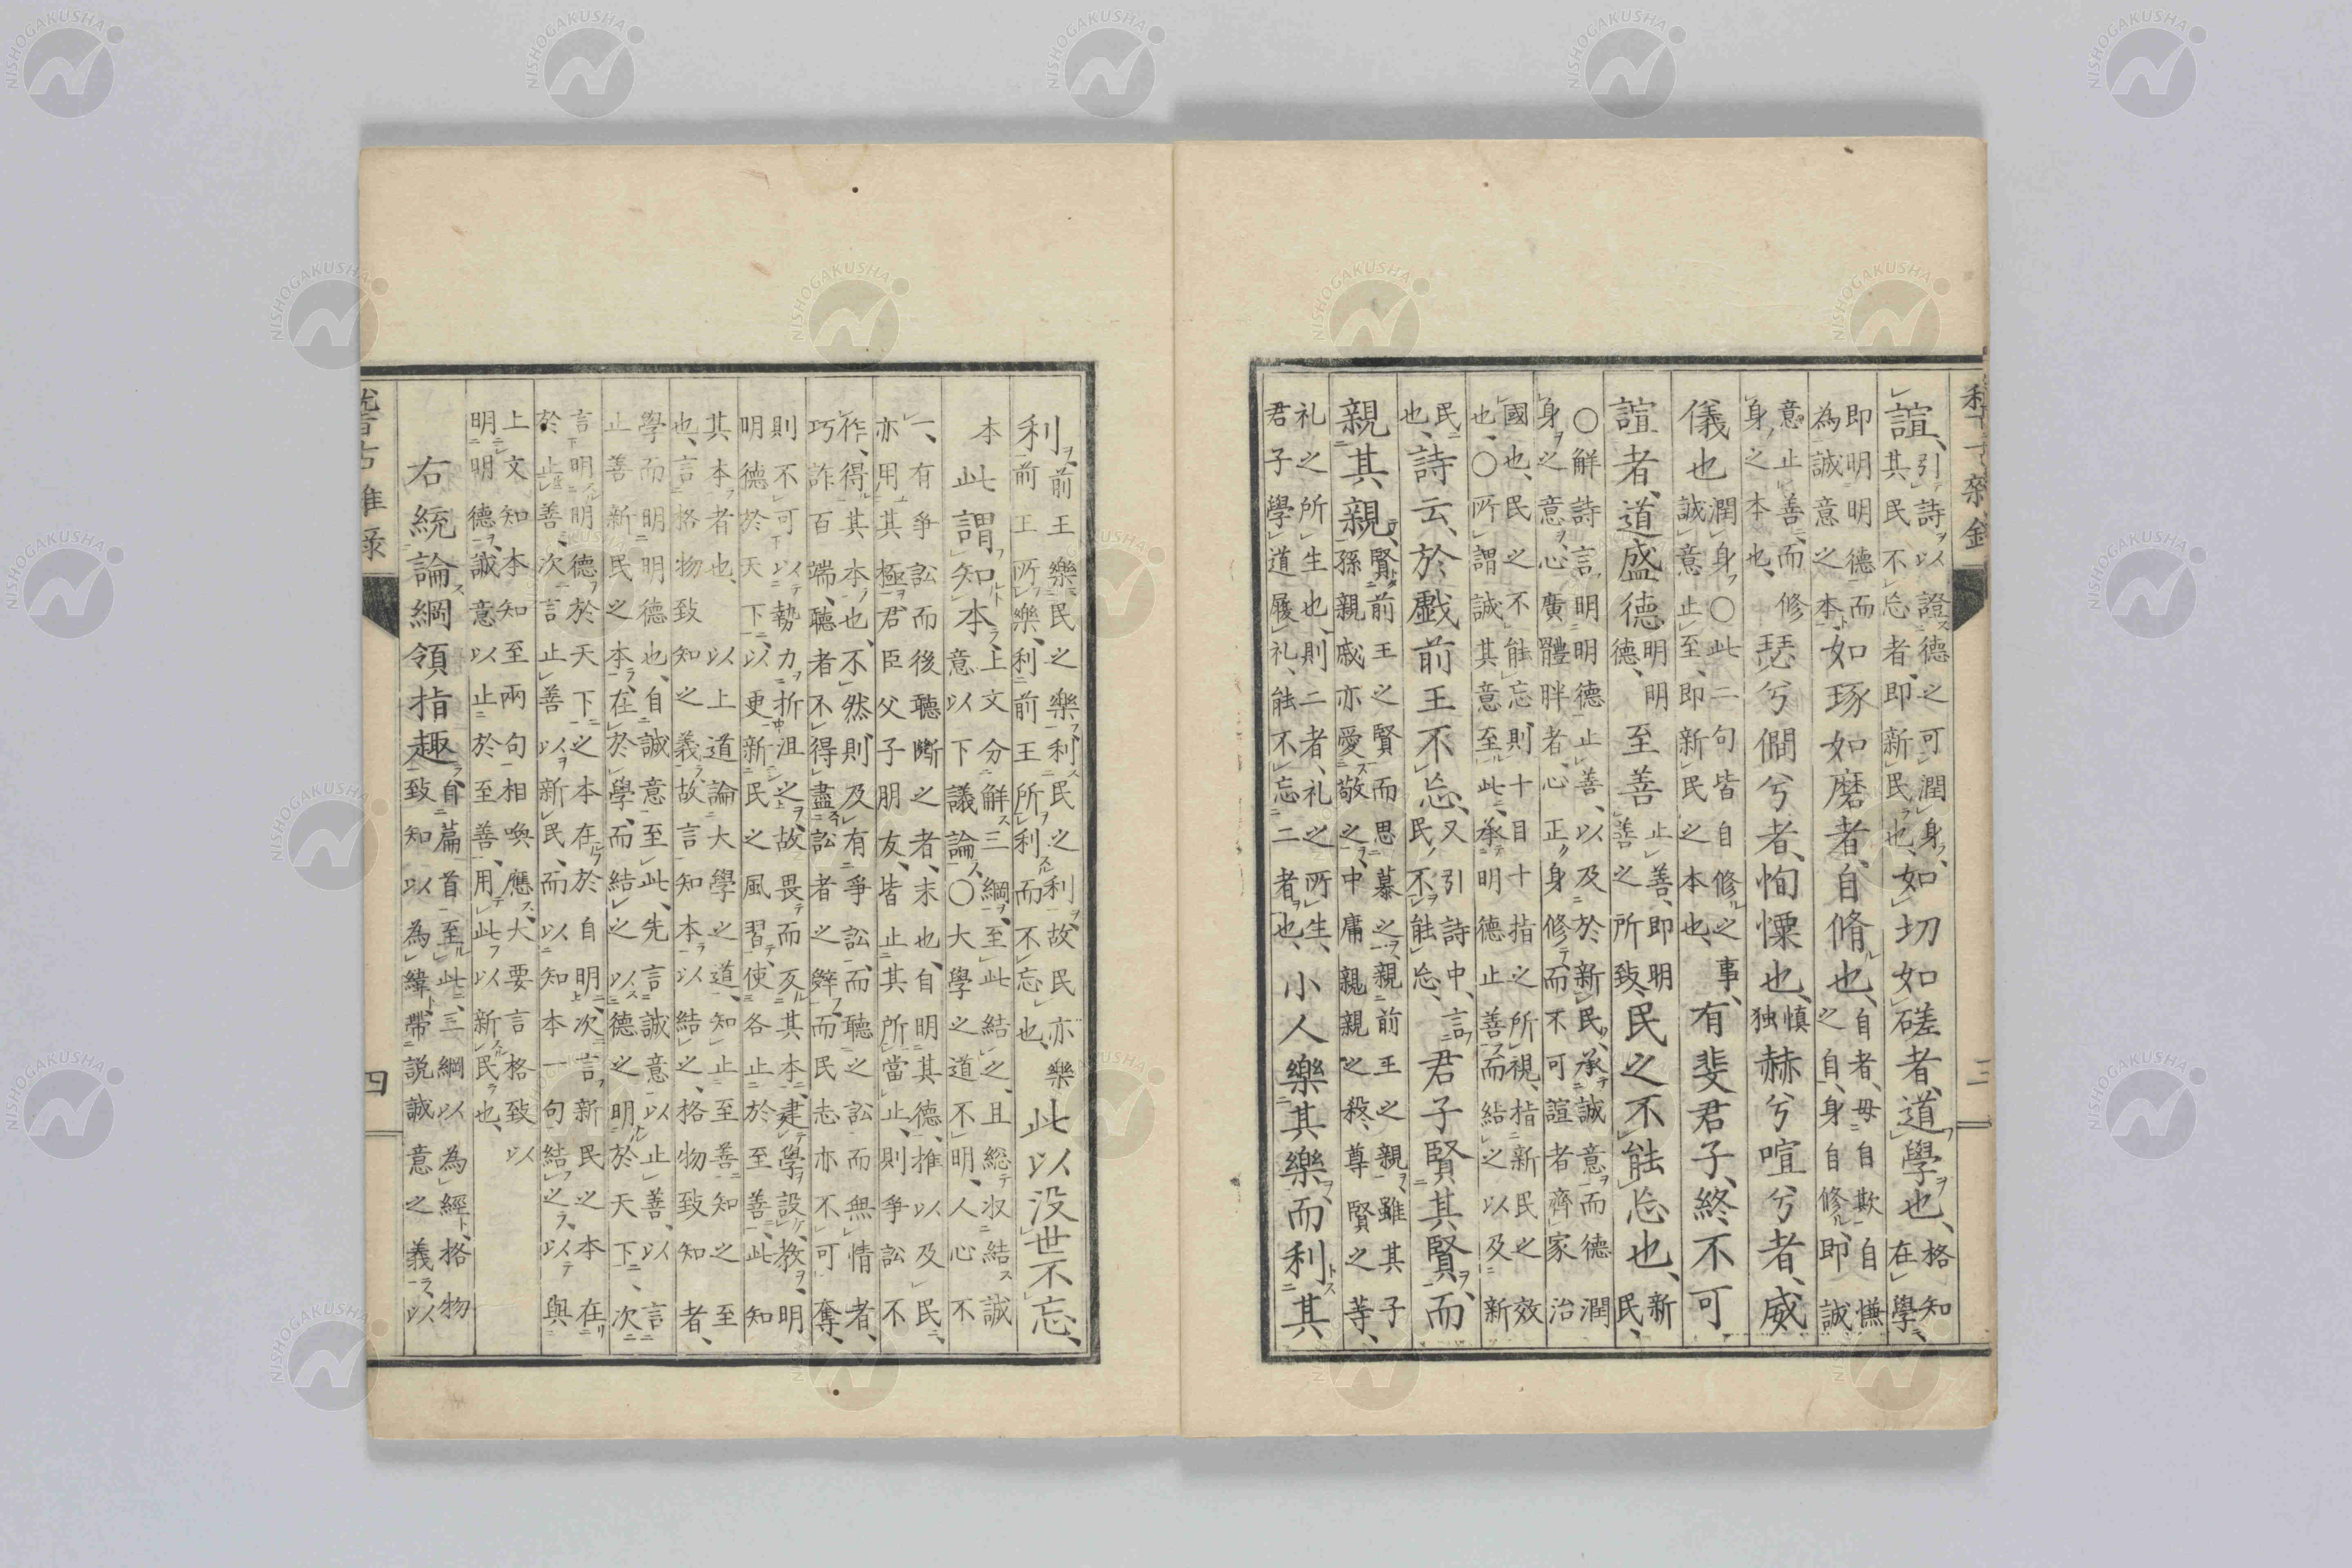 諠、引詩以證德之可潤身、
其民不忘者、即新民也、如切如磋者、道學也、格知
在學、
即明明德而
為誠意之本如琢如磨者、自脩也、自者、毋自欺自慊
之自、身自修、即誠
意止善、而修
身之本也、瑟兮僩兮者、恂慄也、慎
独赫兮喧兮者、威
儀也潤身○此二句皆自修之事、
誠意止至、即新民之本也、有斐君子、終不可
諠者、道盛德明明
德、至善止善、即明
善之所致、民之不能忘也、新
民、
○解詩言明明德止善、以及於新民、承誠意而德潤
身之意心廣體胖者、心正身修而不可諠者齊家治
國也、民之不能忘、則十目十指之所視、指新民之效
也、○所謂誠其意至此、承明德止善而結之以及新
民
也、詩云、於戯前王不忘、又引詩中、言
民不能忘、君子賢其賢、而
親其親、賢前王之賢而思慕之、親前王之親、雖其子
孫親戚亦愛敬之、中庸親親之殺、尊賢之等、
礼之所生也、則二者、礼之所生、
君子學道履礼、能不忘二者也、小人樂其樂、而利其
三
利前王樂民之樂、利民之利、故民亦樂
前王所樂、利前王所利而不忘也、此以没世不忘、
本此謂知本、上文分解三綱、至此結之、且総収結誠
意以下議論、○大學之道不明、人心不
一、有爭訟而後聽斷之者、末也、自明其德、推以及民、
亦用其極、君臣父子朋友、皆止其所當止、則爭訟不
作、得其本也、不然、則及有爭訟、而聽之訟而無情者、
巧詐百端、聽者不得盡訟者之辭、而民志亦不可奪、
則不可以勢力折沮之、故畏而反其本、建學設教、明
明德於天下、以更新民之風習、使各止於至善、此知
其本者也、以上道論大學之道、知止至善知之至
也、言格物致知之義、故言知本以結之、格物致知者、
學而明明德也、自誠意至此、先言誠意以止善、以言
止善新民之本、在於學、而結之以德之明於天下、次
言明明德於天下之本在於自明、次言新民之本在
於止善、次言止善以新民、而以知本一句結之、以與
上文知本知至兩句相喚應、大要言格致以
明明德、誠意以止於至善、用此以新民也、
右統論綱領指趣自篇首至此、三綱以為經、格物
致知以為緯、帶説誠意之義、以
四
NISHOGAKUSHA